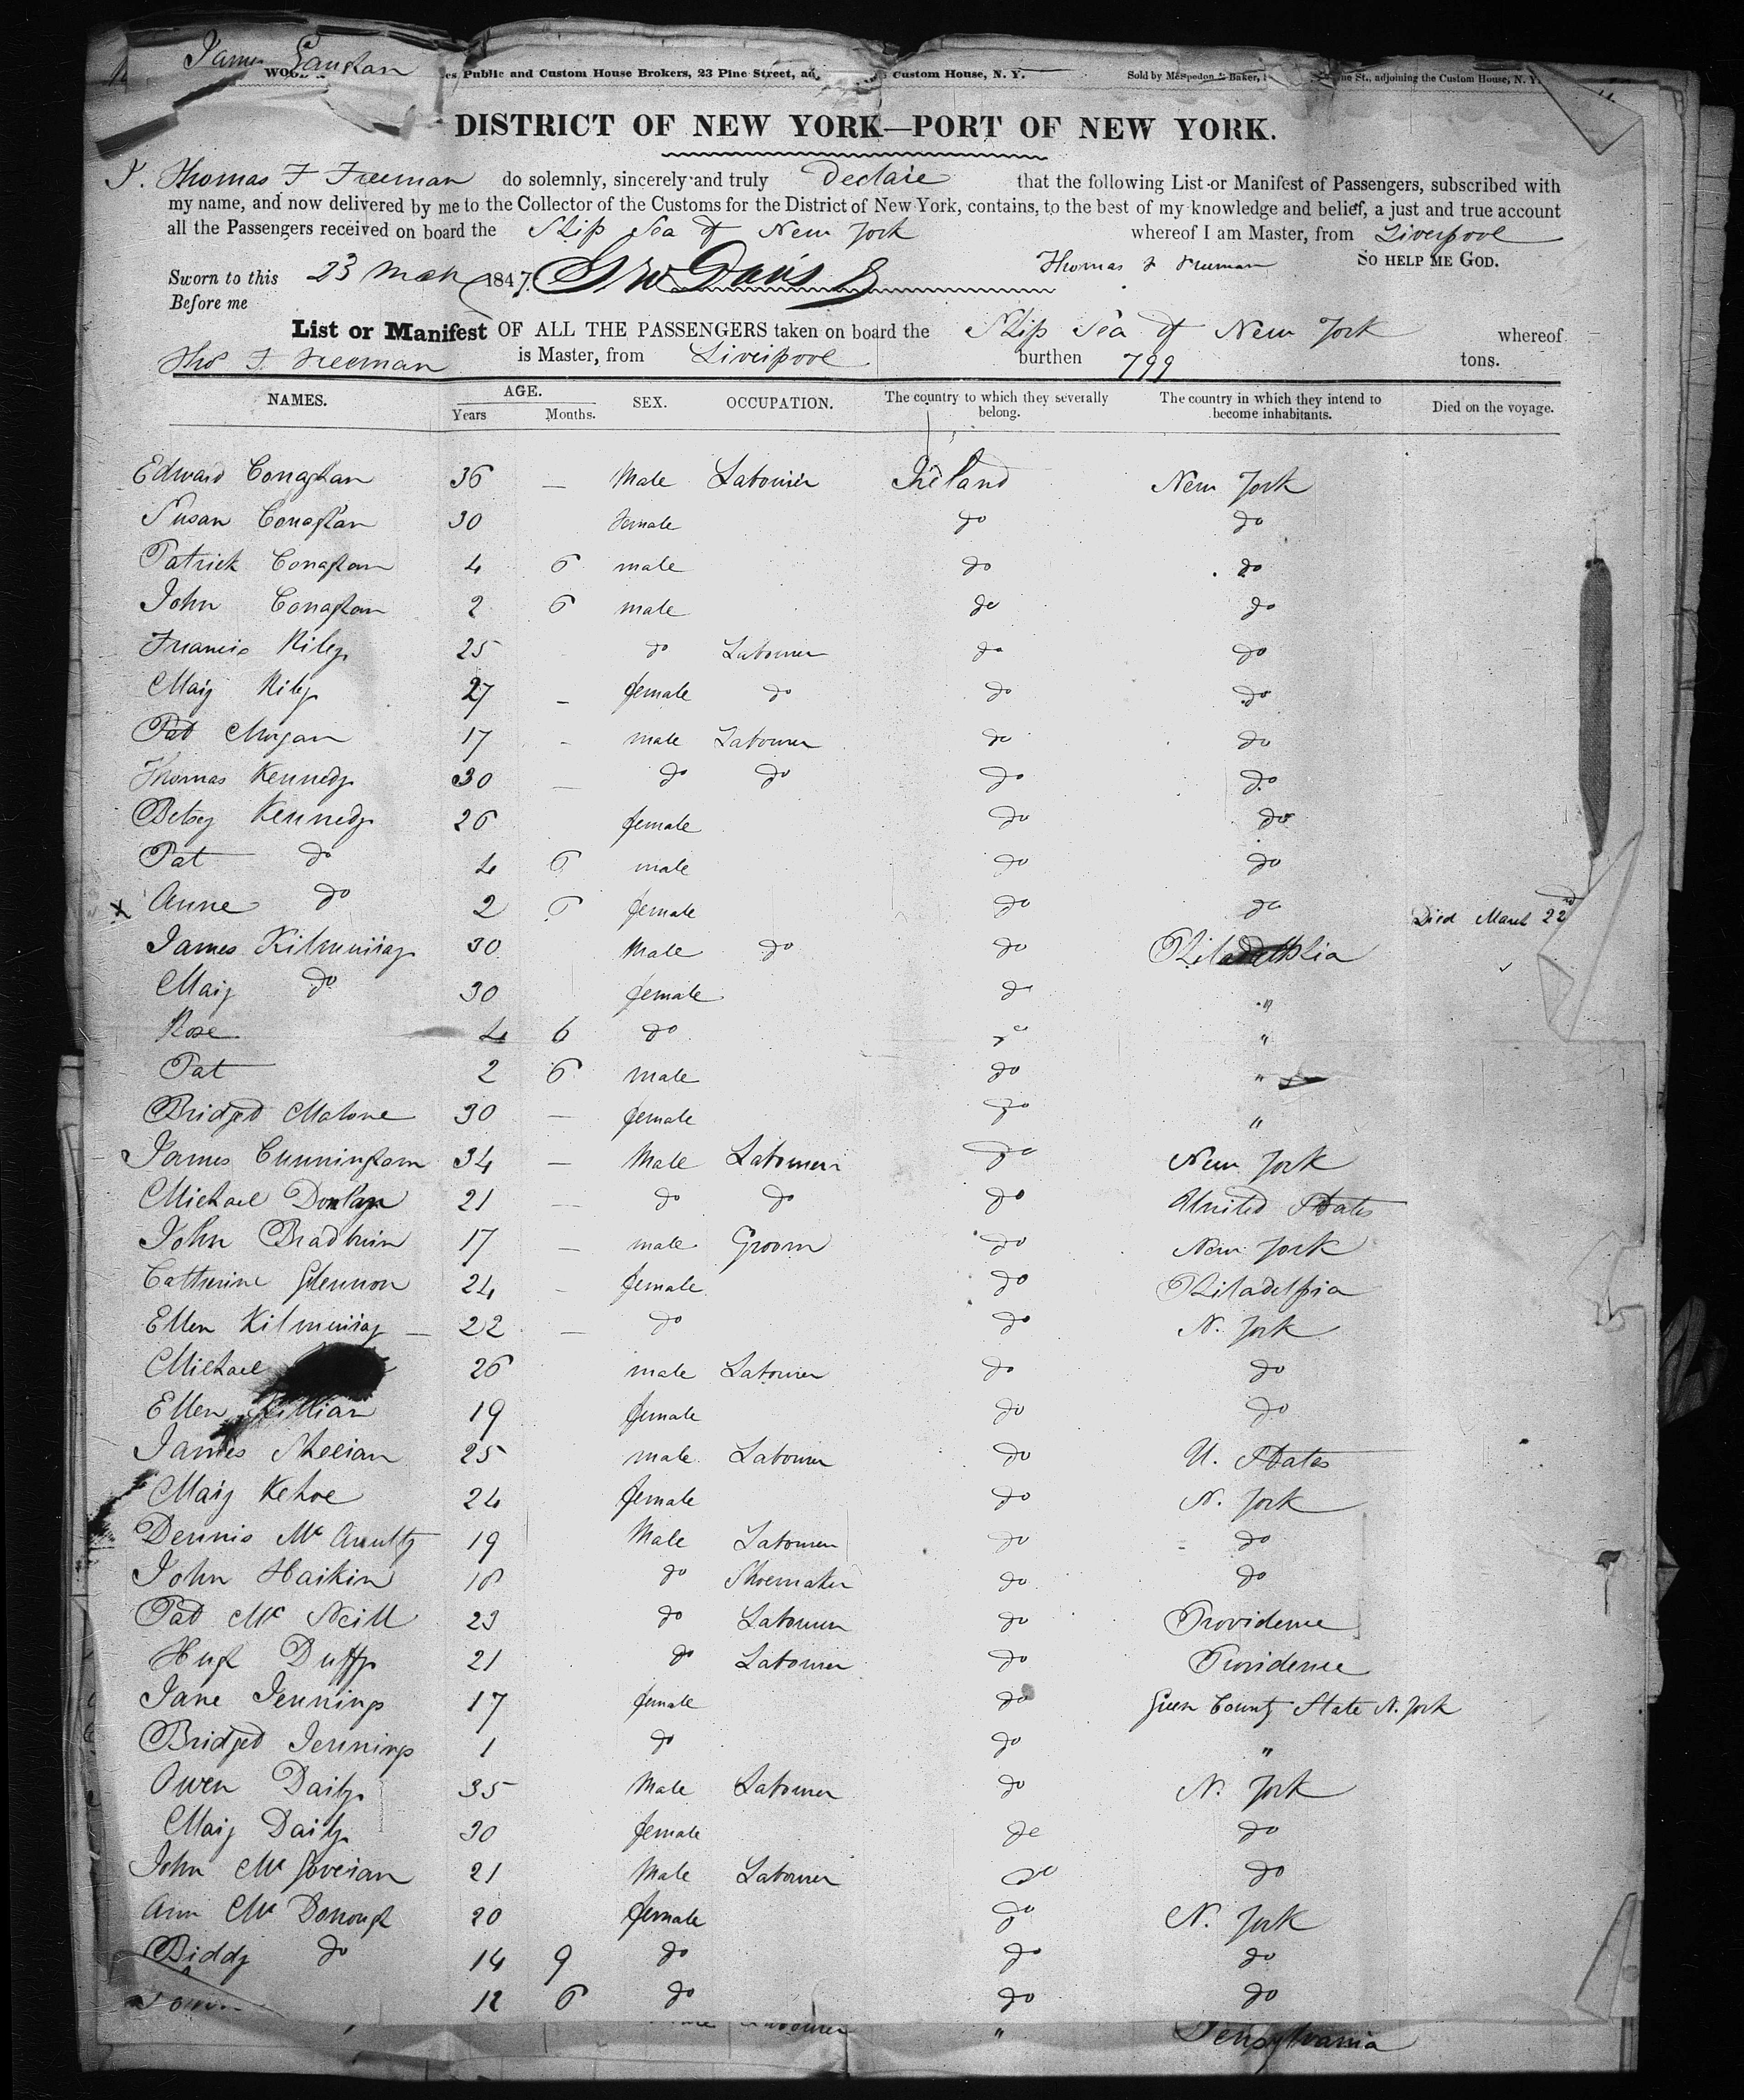 James
Public and Custom House Brokers, 23 Pine Street, Custom House, N. Y. Sold by McSpedon & Baker, St., adjoining the Custom House, N. Y.
DISTRICT OF NEW YORK—PORT OF NEW YORK.
I. Thomas F Freeman do solemnly, sincerely and truly Declare that the following List or Manifest of Passengers, subscribed with
my name, and now delivered by me to the Collector of the Customs for the District of New York, contains, to the best of my knowledge and belief, a just and true account
all the Passengers received on board the Ship Sea of New York whereof I am Master, from Liverpool
Sworn to this 23 March 1847. Davis Thomas F Freeman SO HELP ME GOD.
Before me
List or Manifest OF ALL THE PASSENGERS taken on board the Ship Sea of New York whereof
Thos F. Freeman is Master, from Liverpool burthen 799 tons.
NAMES. AGE. Years Months. SEX. OCCUPATION. The country to which they severally belong. The country in which they intend to become inhabitants. Died on the voyage.
Edward Conaghan 36 — Male Labourer Ireland New York
Susan Conaghan 30 female do do
Patrick Conaghan 4 6 male do do
John Conaghan 2 6 male do do
Francis Riley 25 do Labourer do do
Mary Riley 27 - female do do do
Pat Morgan 17 - male Labourer do do
Thomas Kennedy 30 — do do do do
Betsey Kennedy 26 female do do
Pat do 4 6 male do do
x Anne do 2 6 female do do Died March 22nd
James Kilmurray 30 Male do do Philadelphia
Mary do 30 female do "
Rose 4 6 do do "
Pat 2 6 male do "
Bridget Malone 30 — female do "
James Cunningham 34 — Male Labourer do New York
Michael Donlan 21 — do do do United States
John Bradburn 17 — male Groom do New York
Catherine Glennon 24 - female do Philadelphia
Ellen Kilmurray — 22 — do do N. York
Michael 26 male Labourer do do
Ellen Killian 19 female do do
James Sheeran 25 male Labourer do U. States
Mary Kehoe 24 female do N. York
Dennis Mc 19 Male Labourer do do
John Harkin 18 do Shoemaker do do
Pat Mc Neill 23 do Labourer do Providence
Hugh Duffy 21 do Labourer do Providence
Jane Jennings 17 female do Green County State N. York
Bridget Jennings 1 do do "
Owen Daily 35 Male Labourer do N. York
Mary Daily 30 female do do
John Mc Goveran 21 Male Labourer do do
Ann Mc Donough 20 female do N. York
Biddy do 14 9 do do do
12 6 do do do
Labourer " Pensylvania